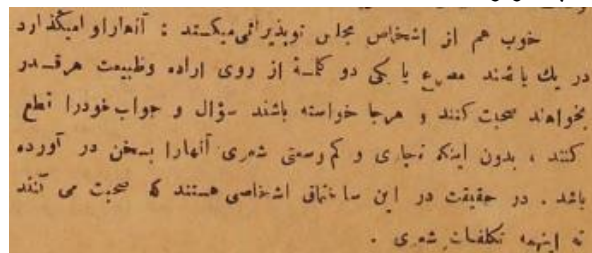 خوب هم از اشخاص مجلس نوپذیرائی میکند : آنهاراوامیگذارد
در یك یا شند مصرع یا یکی دو کلمهٔ از روی اراده وطبیعت هرقدر
بخواهند صحبت کنند و هرجا خواسته باشند سؤال و جواب خودرا قطع
کنند ، بدون اینکه ناچاری و کم وسعتی شعری آنهارا بسخن در آورده
باشد . در حقیقت در این ساختمان اشخاصی هستند که صحبت می کنند
نه اینهمه تکلفات شعری .